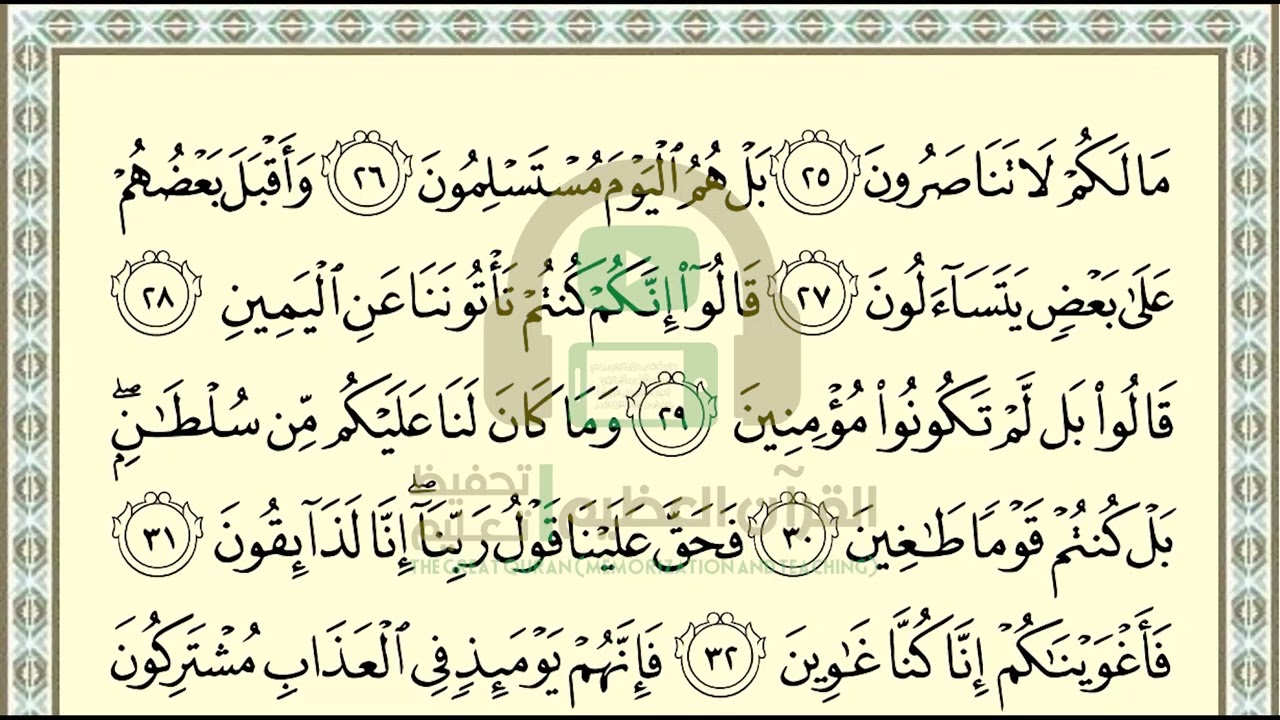 مَا لَكُمْ لَا تَنَاصَرُونَ ٢٥ بَلْ هُمُ ٱلْيَوْمَ مُسْتَسْلِمُونَ ٢٦ وَأَقْبَلَ بَعْضُهُمْ
عَلَىٰ بَعْضٍ يَتَسَآءَلُونَ ٢٧ قَالُوٓا۟ إِنَّكُمْ كُنتُمْ تَأْتُونَنَا عَنِ ٱلْيَمِينِ ٢٨
قَالُوا۟ بَل لَّمْ تَكُونُوا۟ مُؤْمِنِينَ ٢٩ وَمَا كَانَ لَنَا عَلَيْكُم مِّن سُلْطَـٰنٍۭ ۖ
بَلْ كُنتُمْ قَوْمًا طَـٰغِينَ ٣٠ فَحَقَّ عَلَيْنَا قَوْلُ رَبِّنَآ ۖ إِنَّا لَذَآئِقُونَ ٣١
فَأَغْوَيْنَـٰكُمْ إِنَّا كُنَّا غَـٰوِينَ ٣٢ فَإِنَّهُمْ يَوْمَئِذٍ فِى ٱلْعَذَابِ مُشْتَرِكُونَ
القرآن العظيم | تحفيظ تعليم
THE GREAT QURAN (MEMORIZATION AND TEACHING)